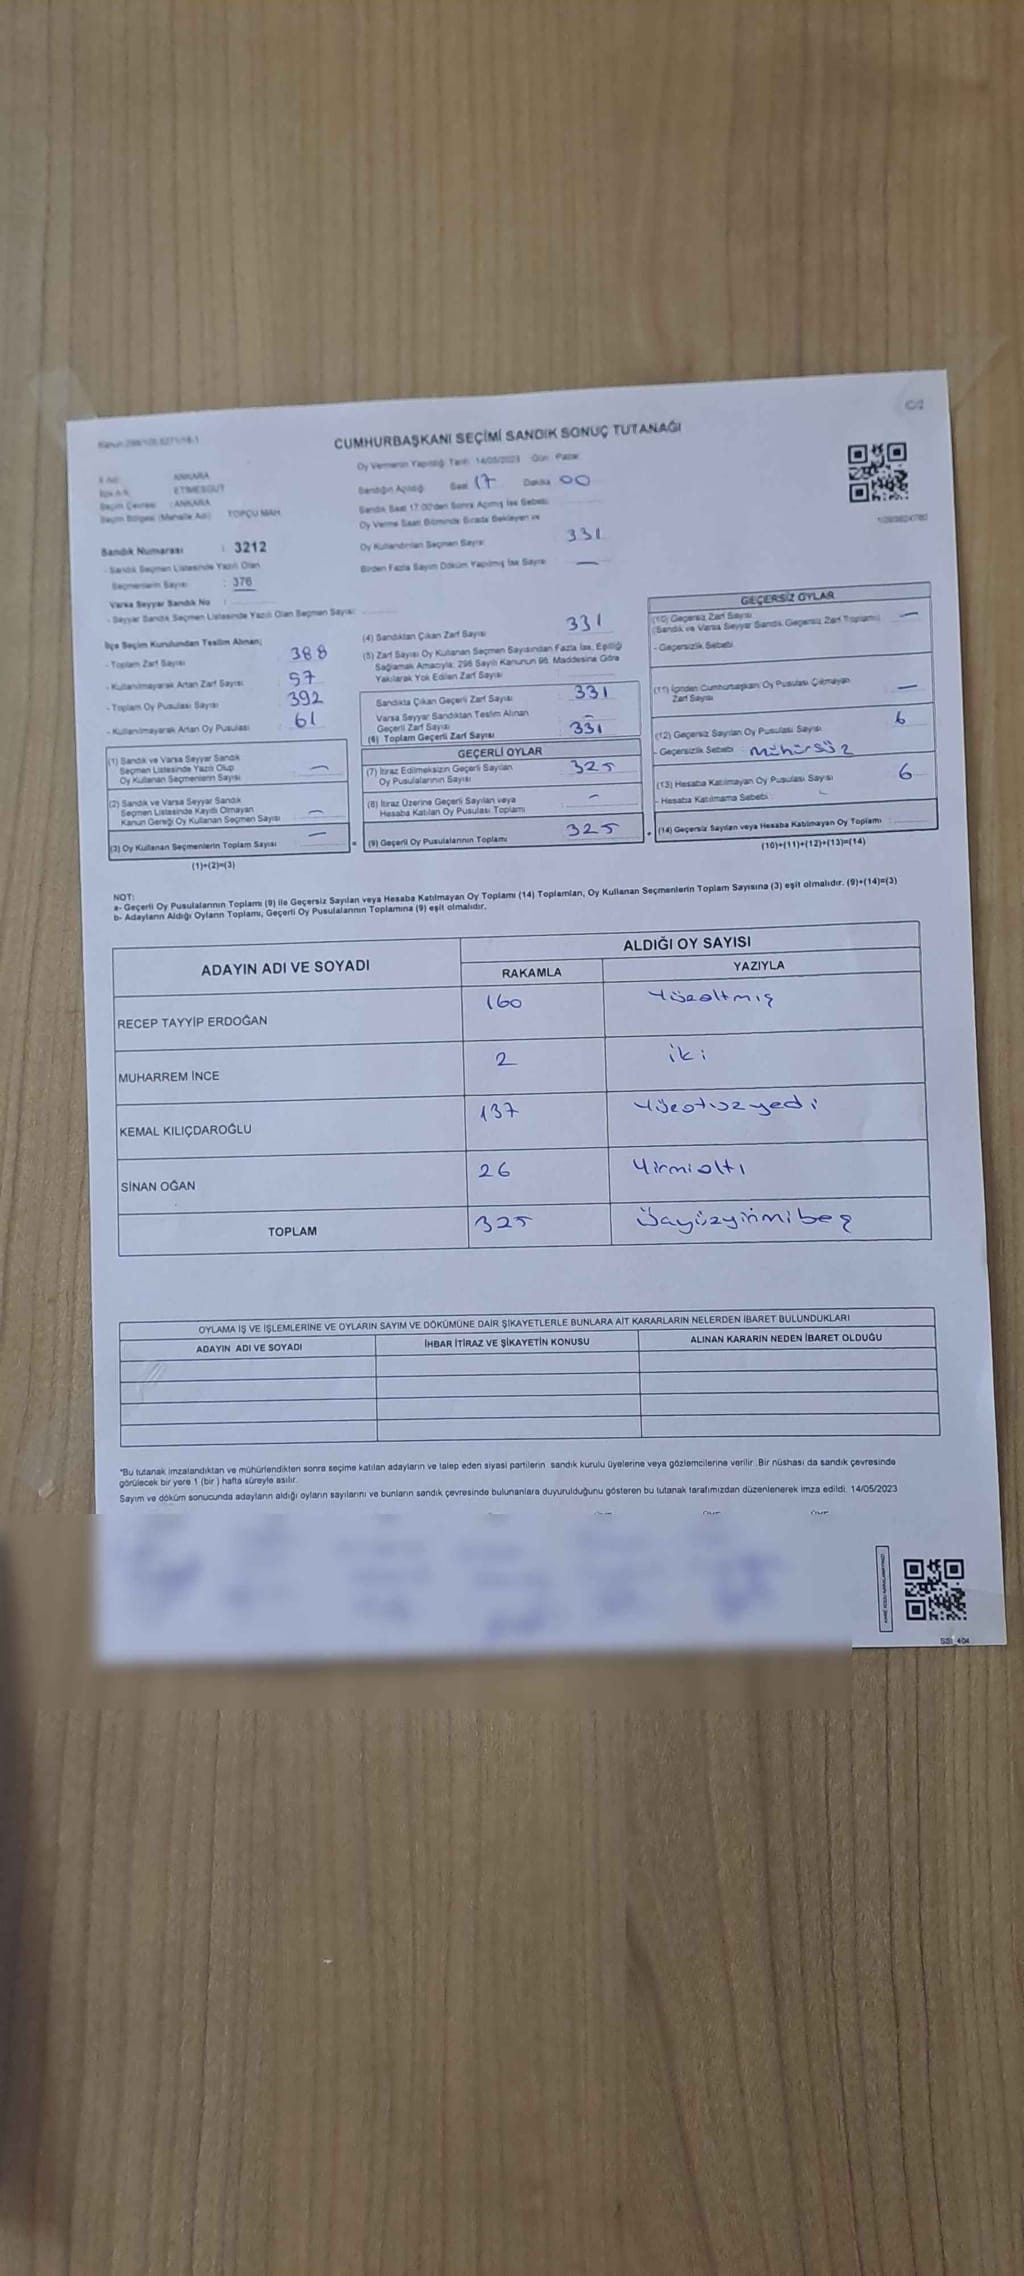 CUMHURBAŞKANI SEÇİMİ SANDIK SONUÇ TUTANAĞI
Oy Vermenin Yapıldığı Tarih 14/05/2023 Gün Pazar
Sandığın Açıldığı Saat 17 Dakika 00
Sandık Saat 17.00'den Sonra Açılmış İse Sebebi
Oy Verme Saati Bitiminde Sırada Bekleyen ve
Oy Kullandırılan Seçmen Sayısı 331
Birden Fazla Sayım Döküm Yapılmış İse Sayısı —
ANKARA
ETİMESGUT
Seçim Çevresi : ANKARA
Seçim Bölgesi (Mahalle Adı) TOPÇU MAH.
Sandık Numarası : 3212
- Sandık Seçmen Listesinde Yazılı Olan
Seçmenlerin Sayısı : 376
Varsa Seyyar Sandık No :
- Seyyar Sandık Seçmen Listesinde Yazılı Olan Seçmen Sayısı
İlçe Seçim Kurulundan Teslim Alınan;
- Toplam Zarf Sayısı 388
- Kullanılmayarak Artan Zarf Sayısı 57
- Toplam Oy Pusulası Sayısı 392
- Kullanılmayarak Artan Oy Pusulası 61
(1) Sandık ve Varsa Seyyar Sandık
Seçmen Listesinde Yazılı Olup
Oy Kullanan Seçmenlerin Sayısı —
(2) Sandık ve Varsa Seyyar Sandık
Seçmen Listesinde Kayıtlı Olmayan
Kanun Gereği Oy Kullanan Seçmen Sayısı —
(3) Oy Kullanan Seçmenlerin Toplam Sayısı —
(1)+(2)=(3)
(4) Sandıktan Çıkan Zarf Sayısı 331
(5) Zarf Sayısı Oy Kullanan Seçmen Sayısından Fazla İse, Eşitliği
Sağlamak Amacıyla; 298 Sayılı Kanunun 98. Maddesine Göre
Yakılarak Yok Edilen Zarf Sayısı
Sandıkta Çıkan Geçerli Zarf Sayısı 331
Varsa Seyyar Sandıktan Teslim Alınan
Geçerli Zarf Sayısı —
(6) Toplam Geçerli Zarf Sayısı 331
GEÇERLİ OYLAR
(7) İtiraz Edilmeksizin Geçerli Sayılan
Oy Pusulalarının Sayısı 325
(8) İtiraz Üzerine Geçerli Sayılan veya
Hesaba Katılan Oy Pusulası Toplamı —
(9) Geçerli Oy Pusulalarının Toplamı 325
GEÇERSİZ OYLAR
(10) Geçersiz Zarf Sayısı
(Sandık ve Varsa Seyyar Sandık Geçersiz Zarf Toplamı) —
- Geçersizlik Sebebi
(11) İçinden Cumhurbaşkanı Oy Pusulası Çıkmayan
Zarf Sayısı —
(12) Geçersiz Sayılan Oy Pusulası Sayısı 6
- Geçersizlik Sebebi : Mühürsüz
(13) Hesaba Katılmayan Oy Pusulası Sayısı 6
- Hesaba Katılmama Sebebi
(14) Geçersiz Sayılan veya Hesaba Katılmayan Oy Toplamı
(10)+(11)+(12)+(13)=(14)
NOT:
a- Geçerli Oy Pusulalarının Toplamı (9) ile Geçersiz Sayılan veya Hesaba Katılmayan Oy Toplamı (14) Toplamları, Oy Kullanan Seçmenlerin Toplam Sayısına (3) eşit olmalıdır. (9)+(14)=(3)
b- Adayların Aldığı Oyların Toplamı, Geçerli Oy Pusulalarının Toplamına (9) eşit olmalıdır.
ADAYIN ADI VE SOYADI ALDIĞI OY SAYISI
RAKAMLA YAZIYLA
RECEP TAYYİP ERDOĞAN 160 Yüzaltmış
MUHARREM İNCE 2 iki
KEMAL KILIÇDAROĞLU 137 Yüzotuzyedi
SİNAN OĞAN 26 Yirmialtı
TOPLAM 325 Üçyüzyirmibeş
OYLAMA İŞ VE İŞLEMLERİNE VE OYLARIN SAYIM VE DÖKÜMÜNE DAİR ŞİKAYETLERLE BUNLARA AİT KARARLARIN NELERDEN İBARET BULUNDUKLARI
ADAYIN ADI VE SOYADI İHBAR İTİRAZ VE ŞİKAYETİN KONUSU ALINAN KARARIN NEDEN İBARET OLDUĞU
*Bu tutanak imzalandıktan ve mühürlendikten sonra seçime katılan adayların ve talep eden siyasi partilerin sandık kurulu üyelerine veya gözlemcilerine verilir. Bir nüshası da sandık çevresinde
görülecek bir yere 1 (bir) hafta süreyle asılır.
Sayım ve döküm sonucunda adayların aldığı oyların sayılarını ve bunların sandık çevresinde bulunanlara duyurulduğunu gösteren bu tutanak tarafımızdan düzenlenerek imza edildi. 14/05/2023